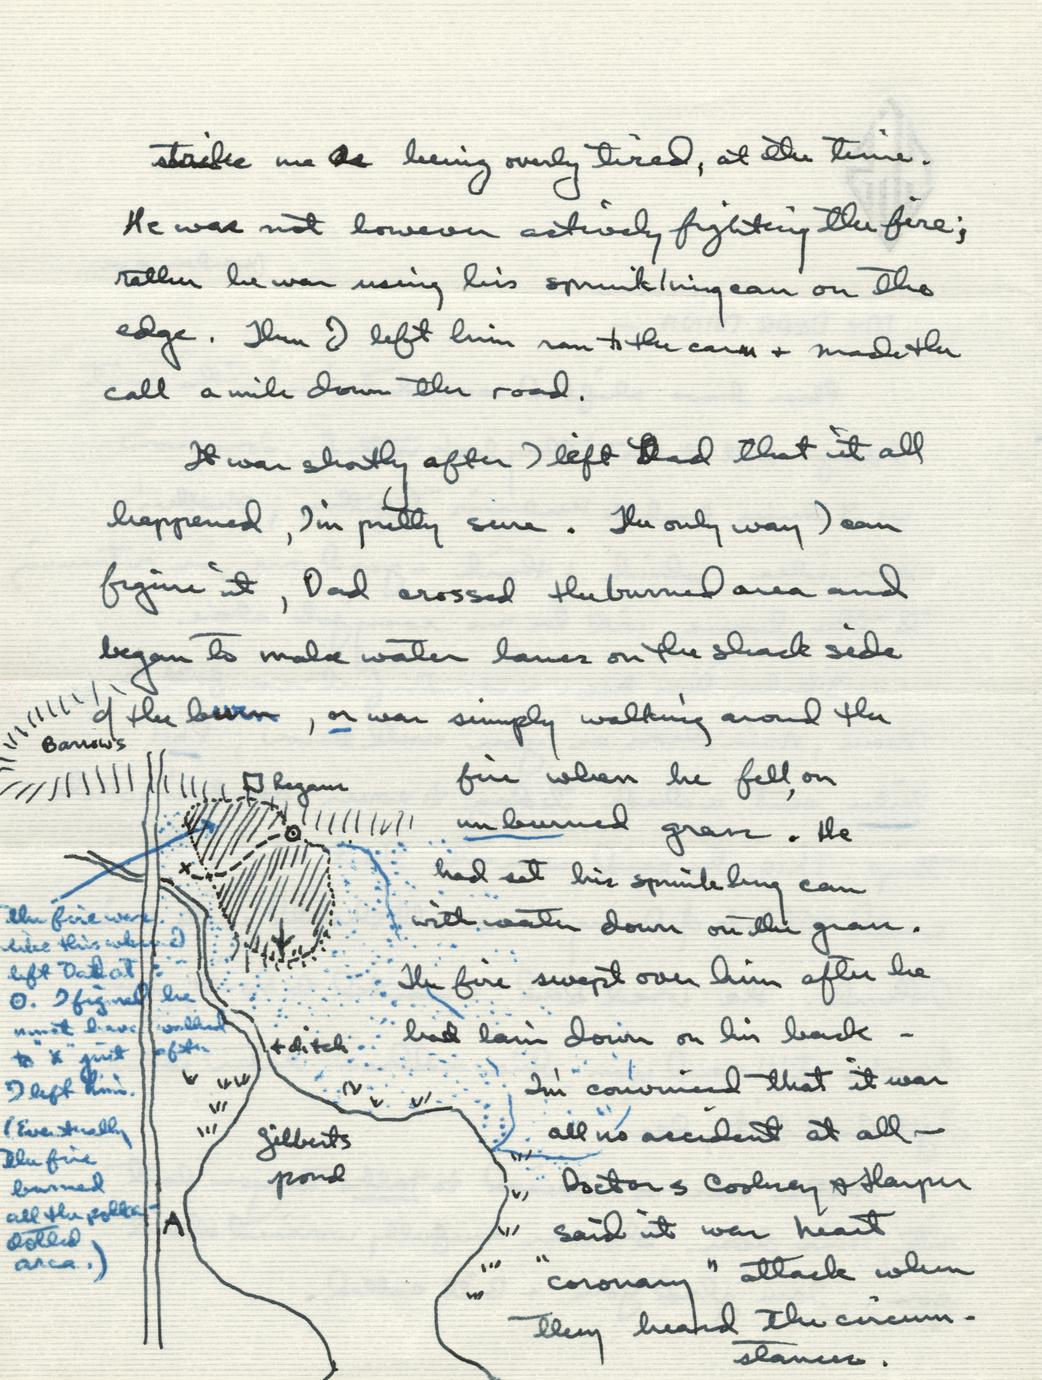 strike me as being overly tired, at the time.
He was not however actively fighting the fire;
rather he was using his sprinkling can on the
edge. Then I left him ran to the car + made the
call a mile down the road.
It was shortly after I left Dad that it all
happened, I'm pretty sure. The only way I can
figure it, Dad crossed the burned area and
began to make water lanes on the shack side
of the burn, or was simply walking around the
fire when he fell, on
unburned grass. He
had set his sprinkling can
with water down on the grass.
The fire swept over him after he
had lain down on his back –
I'm convinced that it was
all no accident at all –
Doctors Cooney & Harper
said it was heart
"coronary" attack when
they heard the circum-
stances.
Barrows
began
the fire was
like this when I
left Dad at
⊙. I figured he
must have walked
to "x" just after
I left him.
(Eventually
the fire
burned
all the polka-
dotted
area.)
+ ditch
Gilberts
pond
A